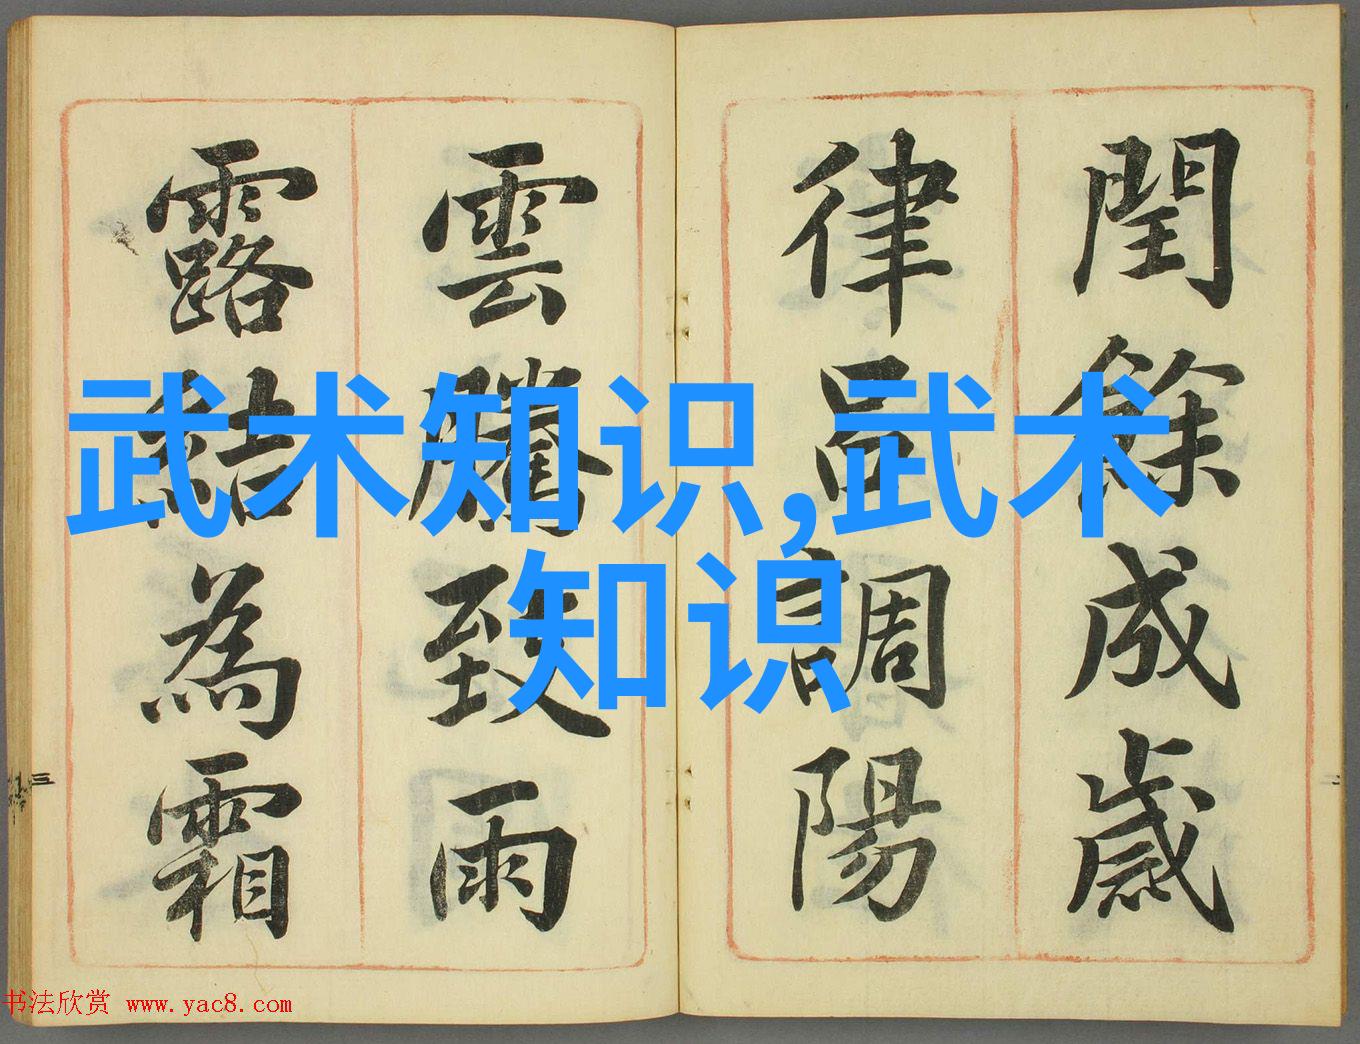 閏餘成歲
律呂調陽
雲騰致雨
露結為霜
武术知识,武术
知识
三
书法欣赏 www.yac8.com